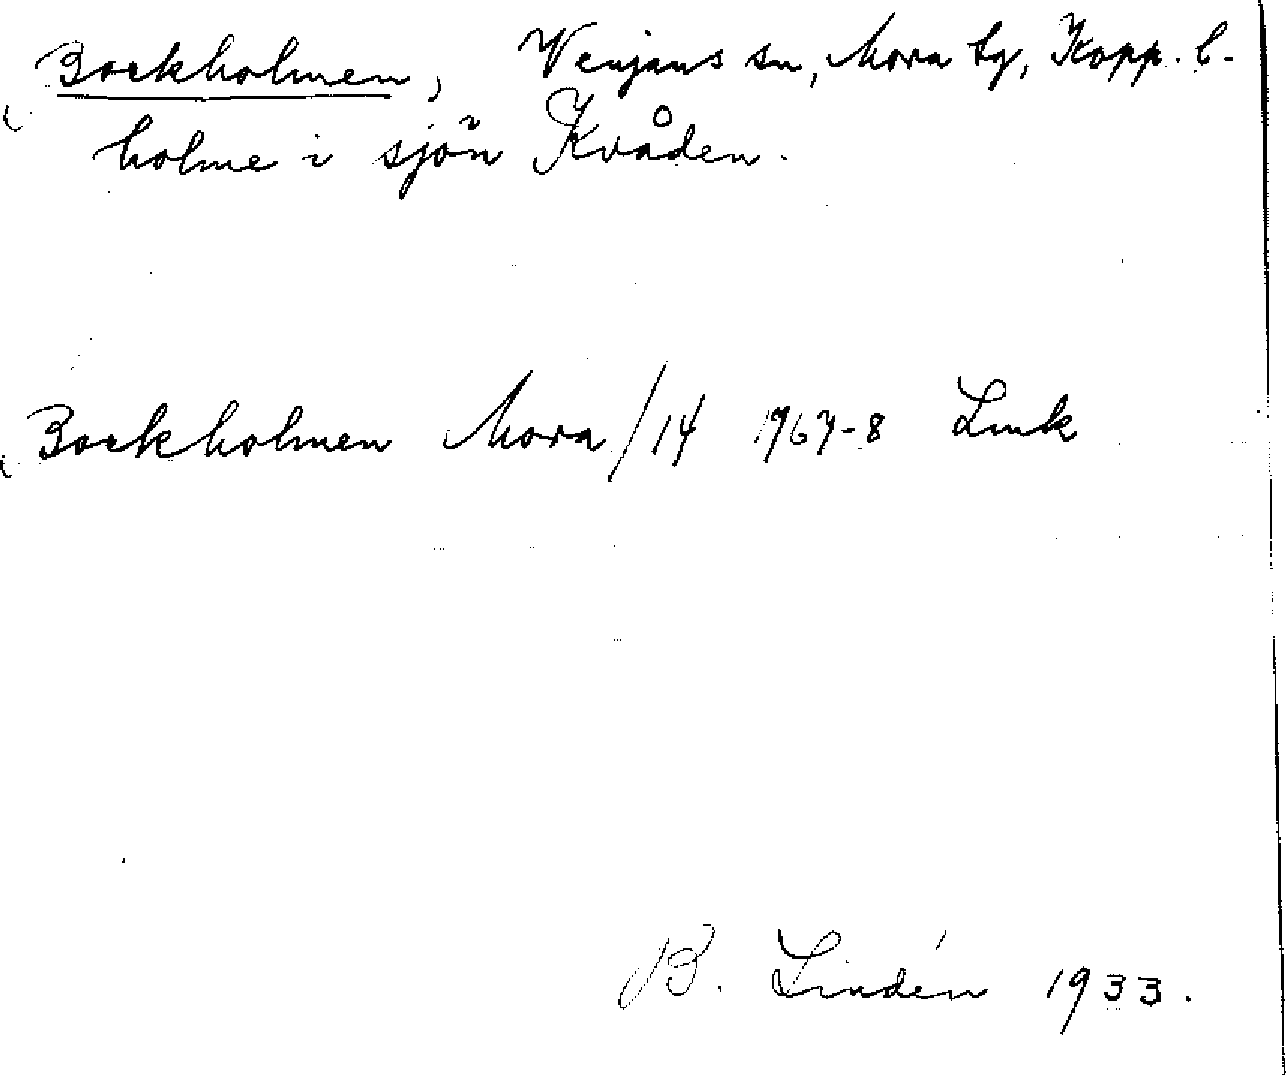 Bockholmen, Venjans sn, Mora tg, Kopp. l.
holme i sjön Kvåden.
Bockholmen Mora/14 1967-8 Lmk
B. Lindén 1933.